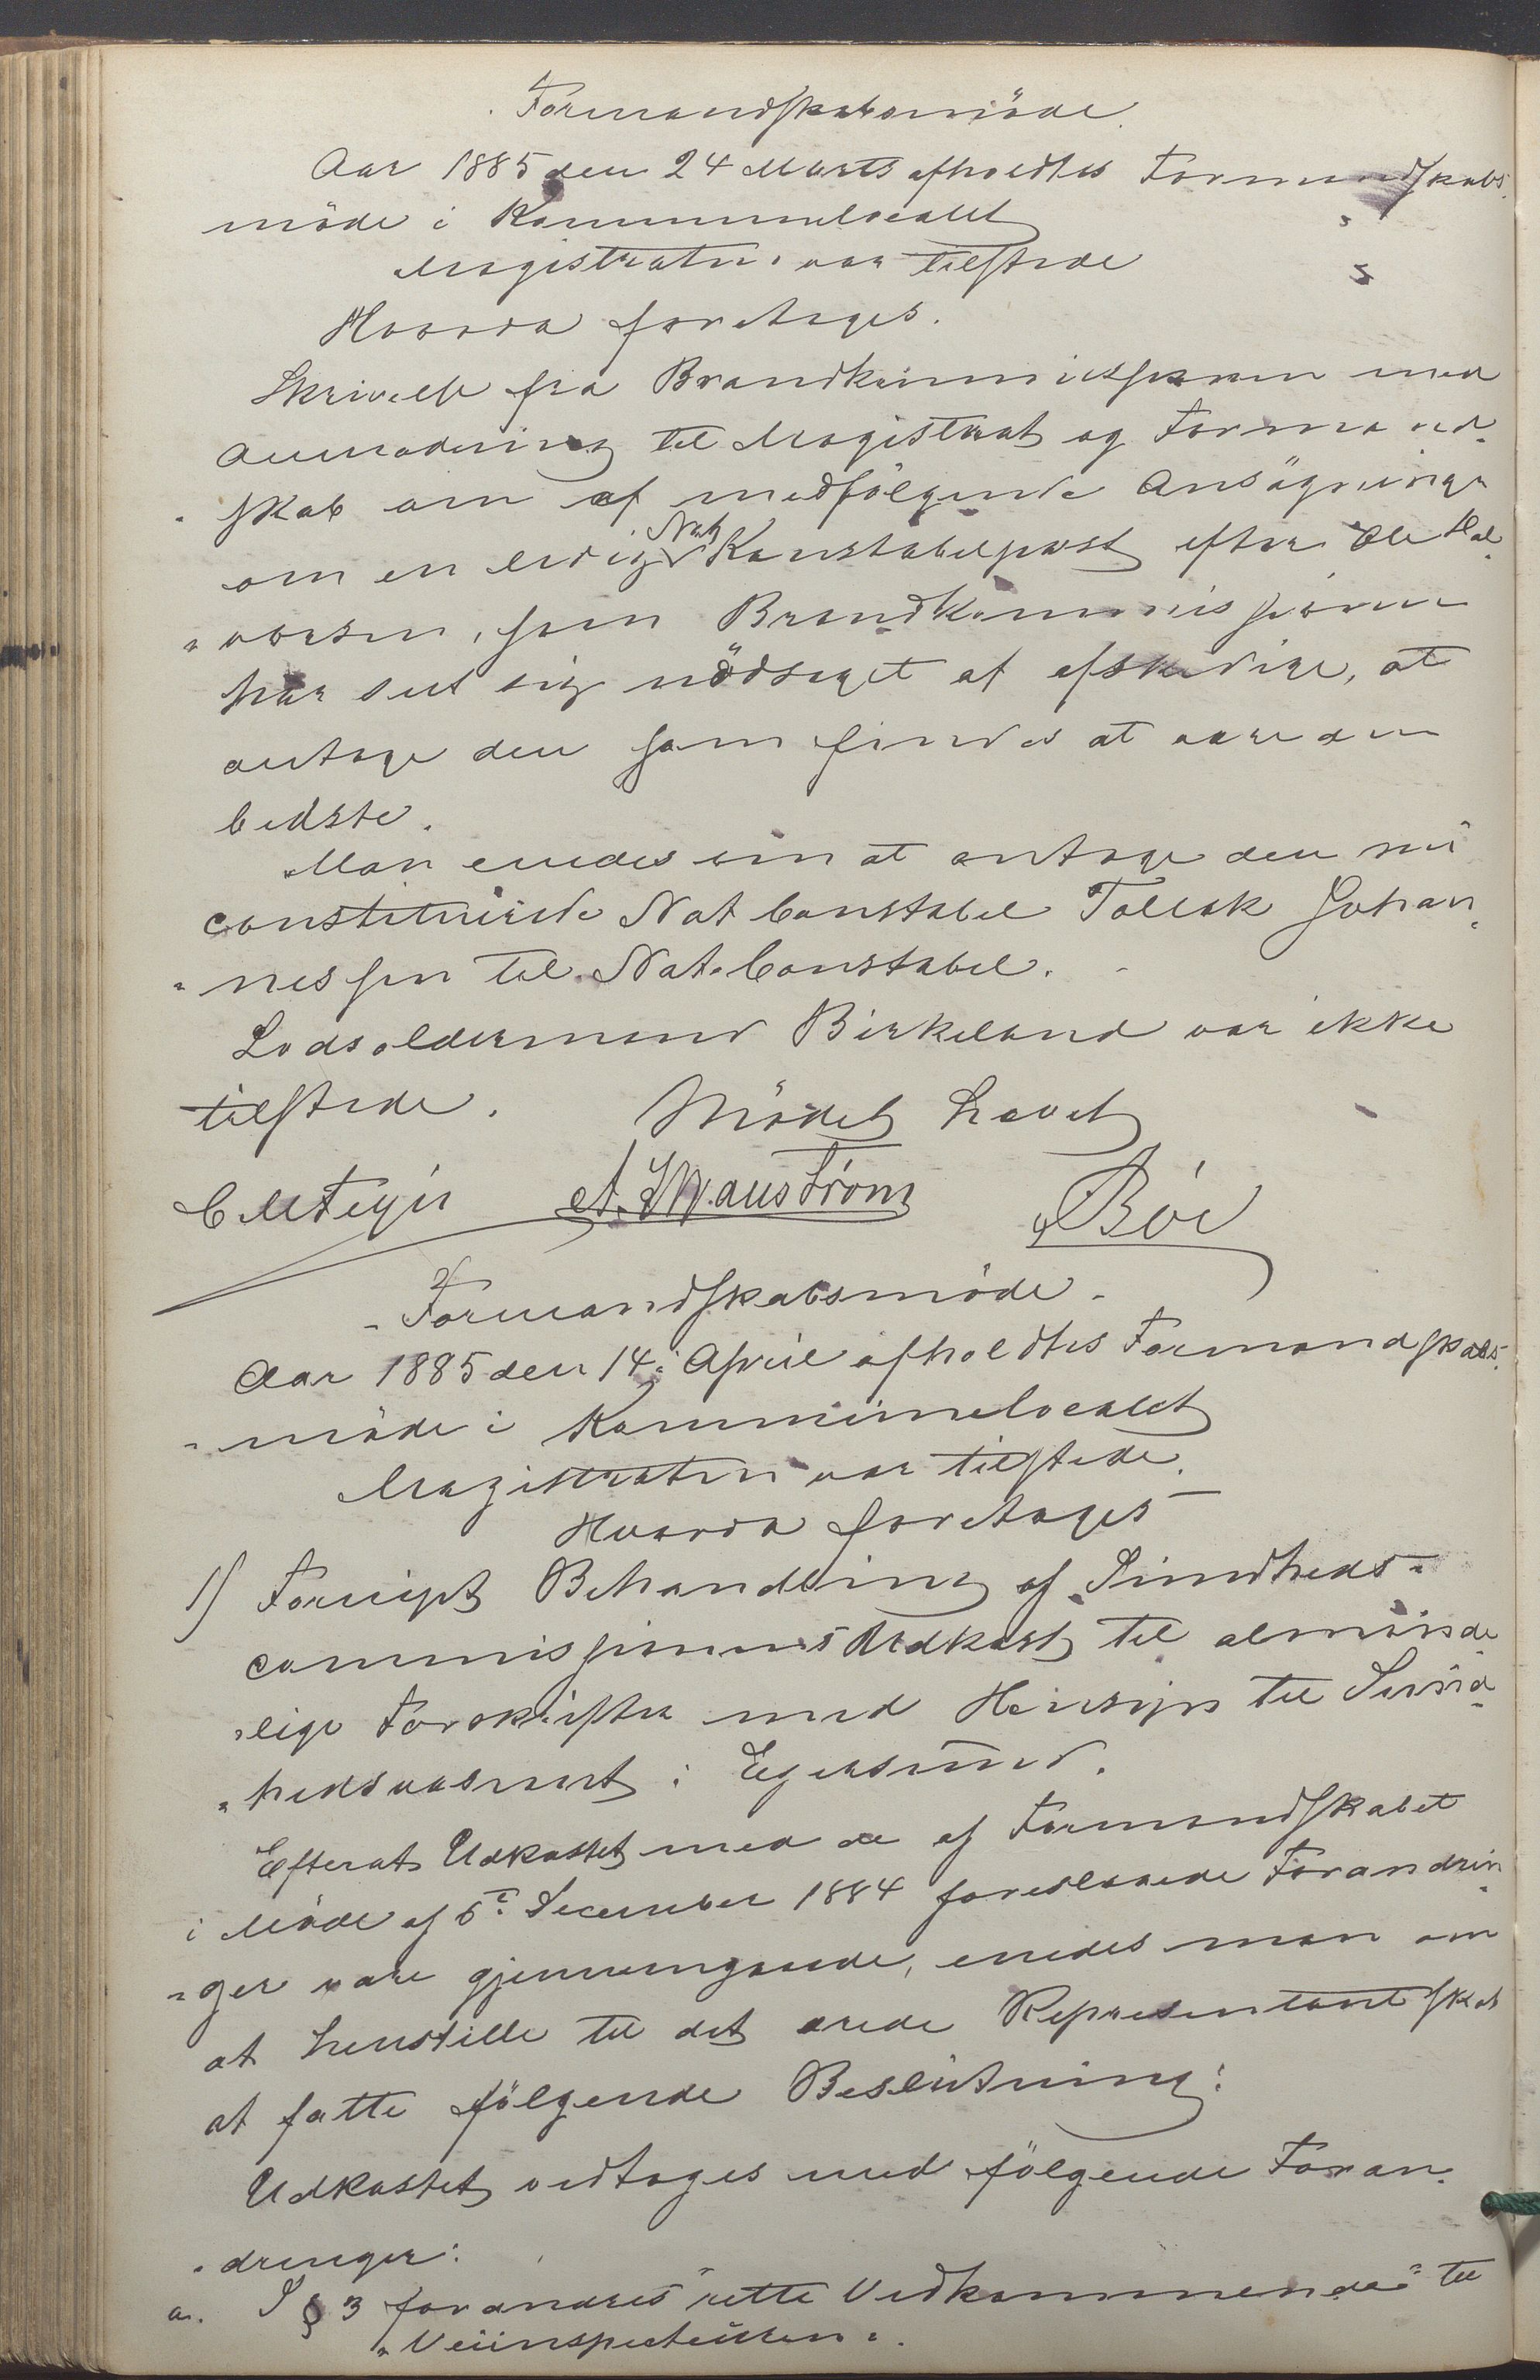 Formandskabsmöde.
Aar 1885 den 24 Marts afholdtes Formandskabs-
möde i Kommunelocalet
Magistraten var tilstede
Hvorda foretoges.
Skrivelse fra Brandkommissionen med
Anmodning til Magistrat og Formand-
skab om af medfölgende Ansögninger
om en ledig Nat Konstabelpost efter Ole Hal-
vorsen, som Brandkommissionen
har seet sig nödsaget at afskedige, at
antage den som findes at være den
bedste.
Man enedes om at antage den nu
constituerede Nat Constabel Tollak Johan-
nessen til Nat-Constabel.
Lodsoldermand Birkeland var ikke
tilstede. Mödet hævet
Böe
Formandskabsmöde.
Aar 1885 den 14. April afholdtes Formandskabs-
möde i Kommunelocalet
Magistraten var tilstede.
Hvorda foretoges
1) Fornyet Behandling af Sundheds-
commissionens Udkast til alminde-
lige Forskrifter med Hensyn til Sund-
hedsvæsenet i Egersund.
Efterat Udkastet med de af Formandskabet
i Möde af 5te December 1884 foreslaaede Forandrin-
ger vare gjennemgaaede, enedes man om
at henstille til det ærede Repræsentantskab
at fatte fölgende Beslutning:
Udkastet vedtages med fölgende Foran-
dringer:
a. I § 3 forandres "rette Vedkommende" til
"Veiinspecteuren".